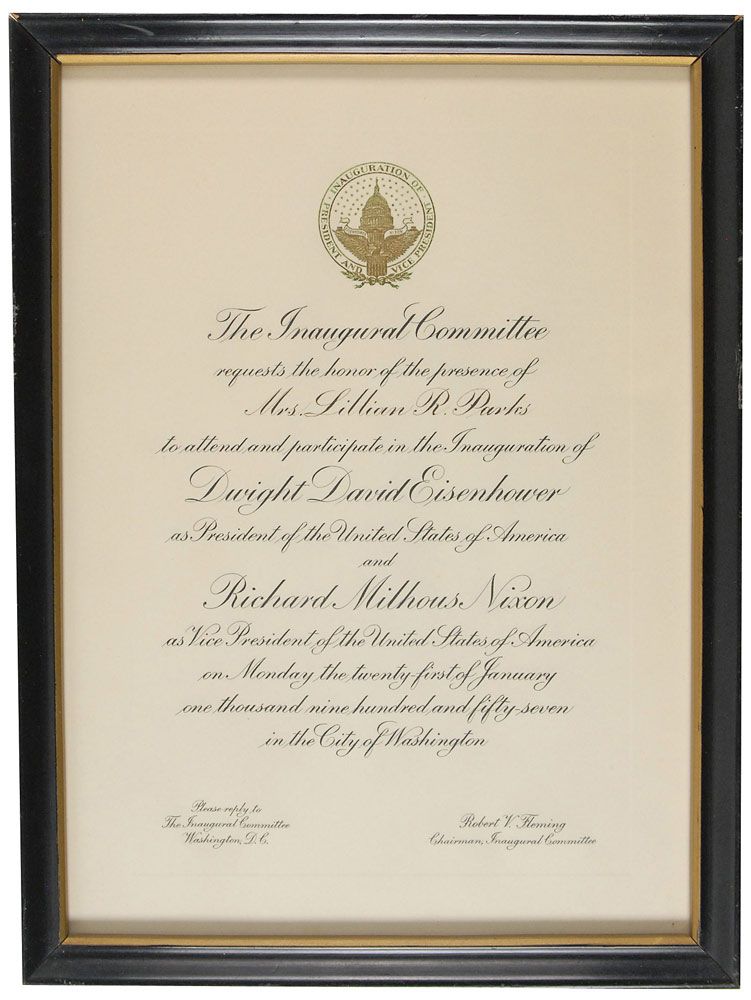 INAUGURATION OF
PRESIDENT AND VICE PRESIDENT
The Inaugural Committee
requests the honor of the presence of
Mrs. Lillian R. Parks
to attend and participate in the Inauguration of
Dwight David Eisenhower
as President of the United States of America
and
Richard Milhous Nixon
as Vice President of the United States of America
on Monday the twenty-first of January
one thousand nine hundred and fifty-seven
in the City of Washington
Please reply to
The Inaugural Committee
Washington, D.C.
Robert V. Fleming
Chairman, Inaugural Committee